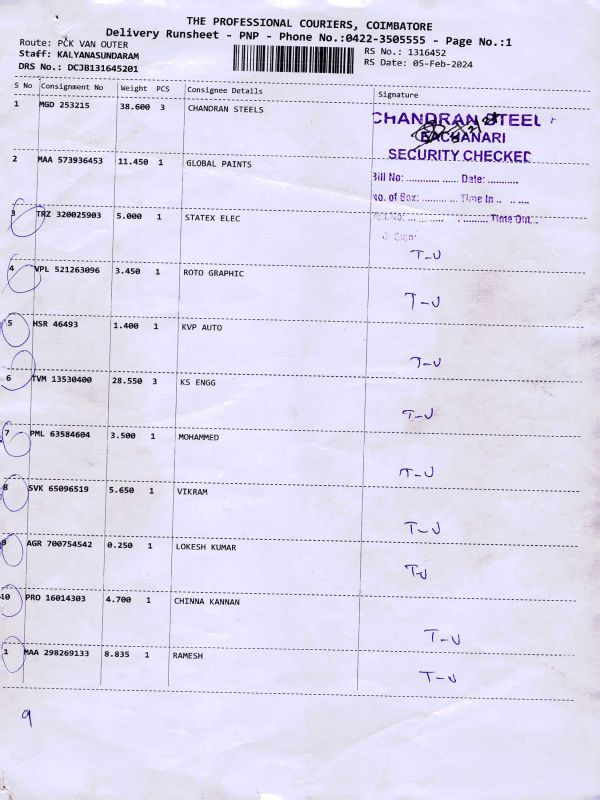 THE PROFESSIONAL COURIERS, COIMBATORE
Delivery Runsheet - PNP - Phone No.:0422-3505555 - Page No.:1
Route: PCK VAN OUTER
RS No.: 1316452
Staff: KALYANASUNDARAM
RS Date: 05-Feb-2024
DRS No.: DCJB131645201
S No Consignment No Weight PCS Consignee Details Signature
1 MGD 253215 38.600 3 CHANDRAN STEELS
CHANDRAN STEEL
SECURITY CHECKED
2 MAA 573936453 11.450 1 GLOBAL PAINTS
Bill No: ............ ...... Date: ...........
No. of Box: ......... ... Time In .. .. ....
Time Out...
3 TRZ 320025903 5.000 1 STATEX ELEC
T-U
4 VPL 521263096 3.450 1 ROTO GRAPHIC
T-U
5 HSR 46493 1.400 1 KVP AUTO
T-U
6 TVM 13530400 28.550 3 KS ENGG
T-U
7 PML 63584604 3.500 1 MOHAMMED
T-U
8 SVK 65096519 5.650 1 VIKRAM
T-U
9 AGR 700754542 0.250 1 LOKESH KUMAR
TU
10 PRO 16014303 4.700 1 CHINNA KANNAN
T-U
1 MAA 298269133 8.835 1 RAMESH
T-U
9